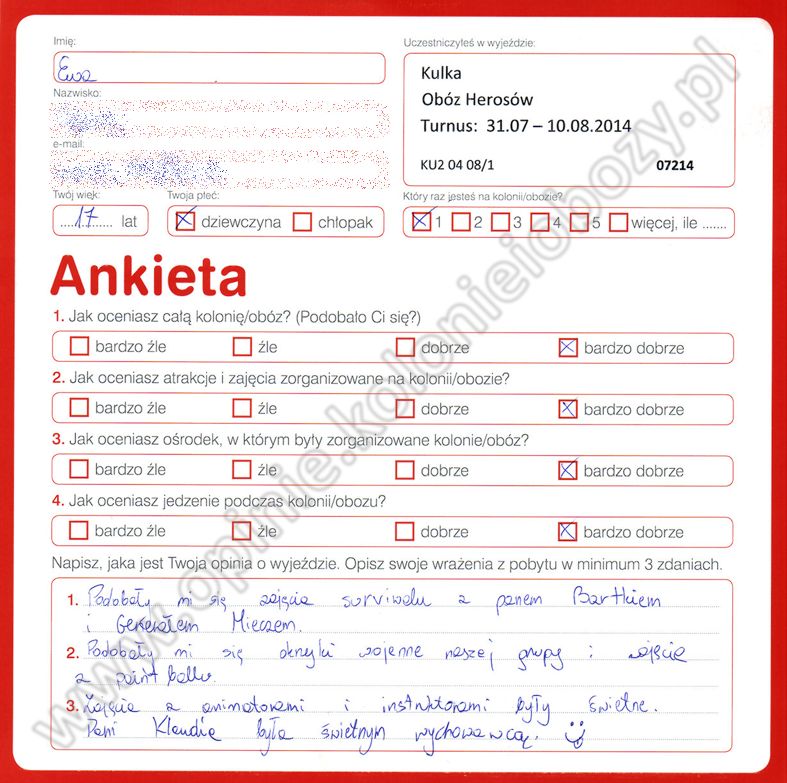 Imię:
Ewa
Nazwisko:
e-mail:
Twój wiek:
17 lat
Twoja płeć:
dziewczyna chłopak
Uczestniczyłeś w wyjeździe:
Kulka
Obóz Herosów
Turnus: 31.07 – 10.08.2014
KU2 04 08/1 07214
Który raz jesteś na kolonii/obozie?
1 2 3 4 5 więcej, ile .......
Ankieta
1. Jak oceniasz całą kolonię/obóz? (Podobało Ci się?)
bardzo źle źle dobrze bardzo dobrze
2. Jak oceniasz atrakcje i zajęcia zorganizowane na kolonii/obozie?
bardzo źle źle dobrze bardzo dobrze
3. Jak oceniasz ośrodek, w którym były zorganizowane kolonie/obóz?
bardzo źle źle dobrze bardzo dobrze
4. Jak oceniasz jedzenie podczas kolonii/obozu?
bardzo źle źle dobrze bardzo dobrze
Napisz, jaka jest Twoja opinia o wyjeździe. Opisz swoje wrażenia z pobytu w minimum 3 zdaniach.
1. Podobały mi się zajęcia survivalu z panem Bartkiem
i Generałem Mieczem.
2. Podobały mi się okrzyki wojenne naszej grupy i zajęcia
z paint ballu.
3. Zajęcia z animatorami i instruktorami były świetne.
Pani Klaudia była świetnym wychowawcą.
www.opinie.kolonieiobozy.pl